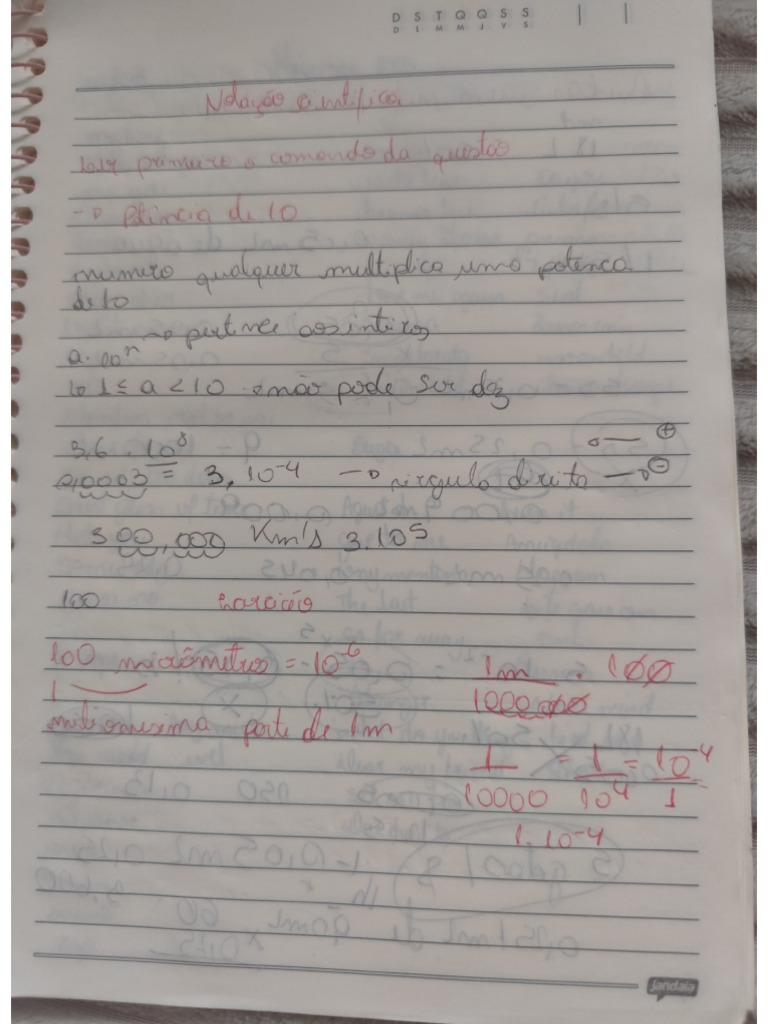 D S T Q Q S S
D L M M J V S
Notação cintifica
ler primeiro o comando da questão
→ Potência de 10
numero qualquer multiplica uma potenca
de 10
→ pertence aos inteiros
a.10ⁿ
↳ 1 ≤ a < 10 não pode ser dez
3,6 . 10⁸ ←— ⊕
0,0003 = 3, 10⁻⁴ → virgula direita → ⊖
300,000 Km/s 3.10⁵
100 Exercício
100 micrômetros = 10⁻⁶ 1m/1000000 . 100
1
milionesima parte de 1m
1/10000 = 1/10⁴ = 10⁴/1 =
1.10⁻⁴
Jandaia